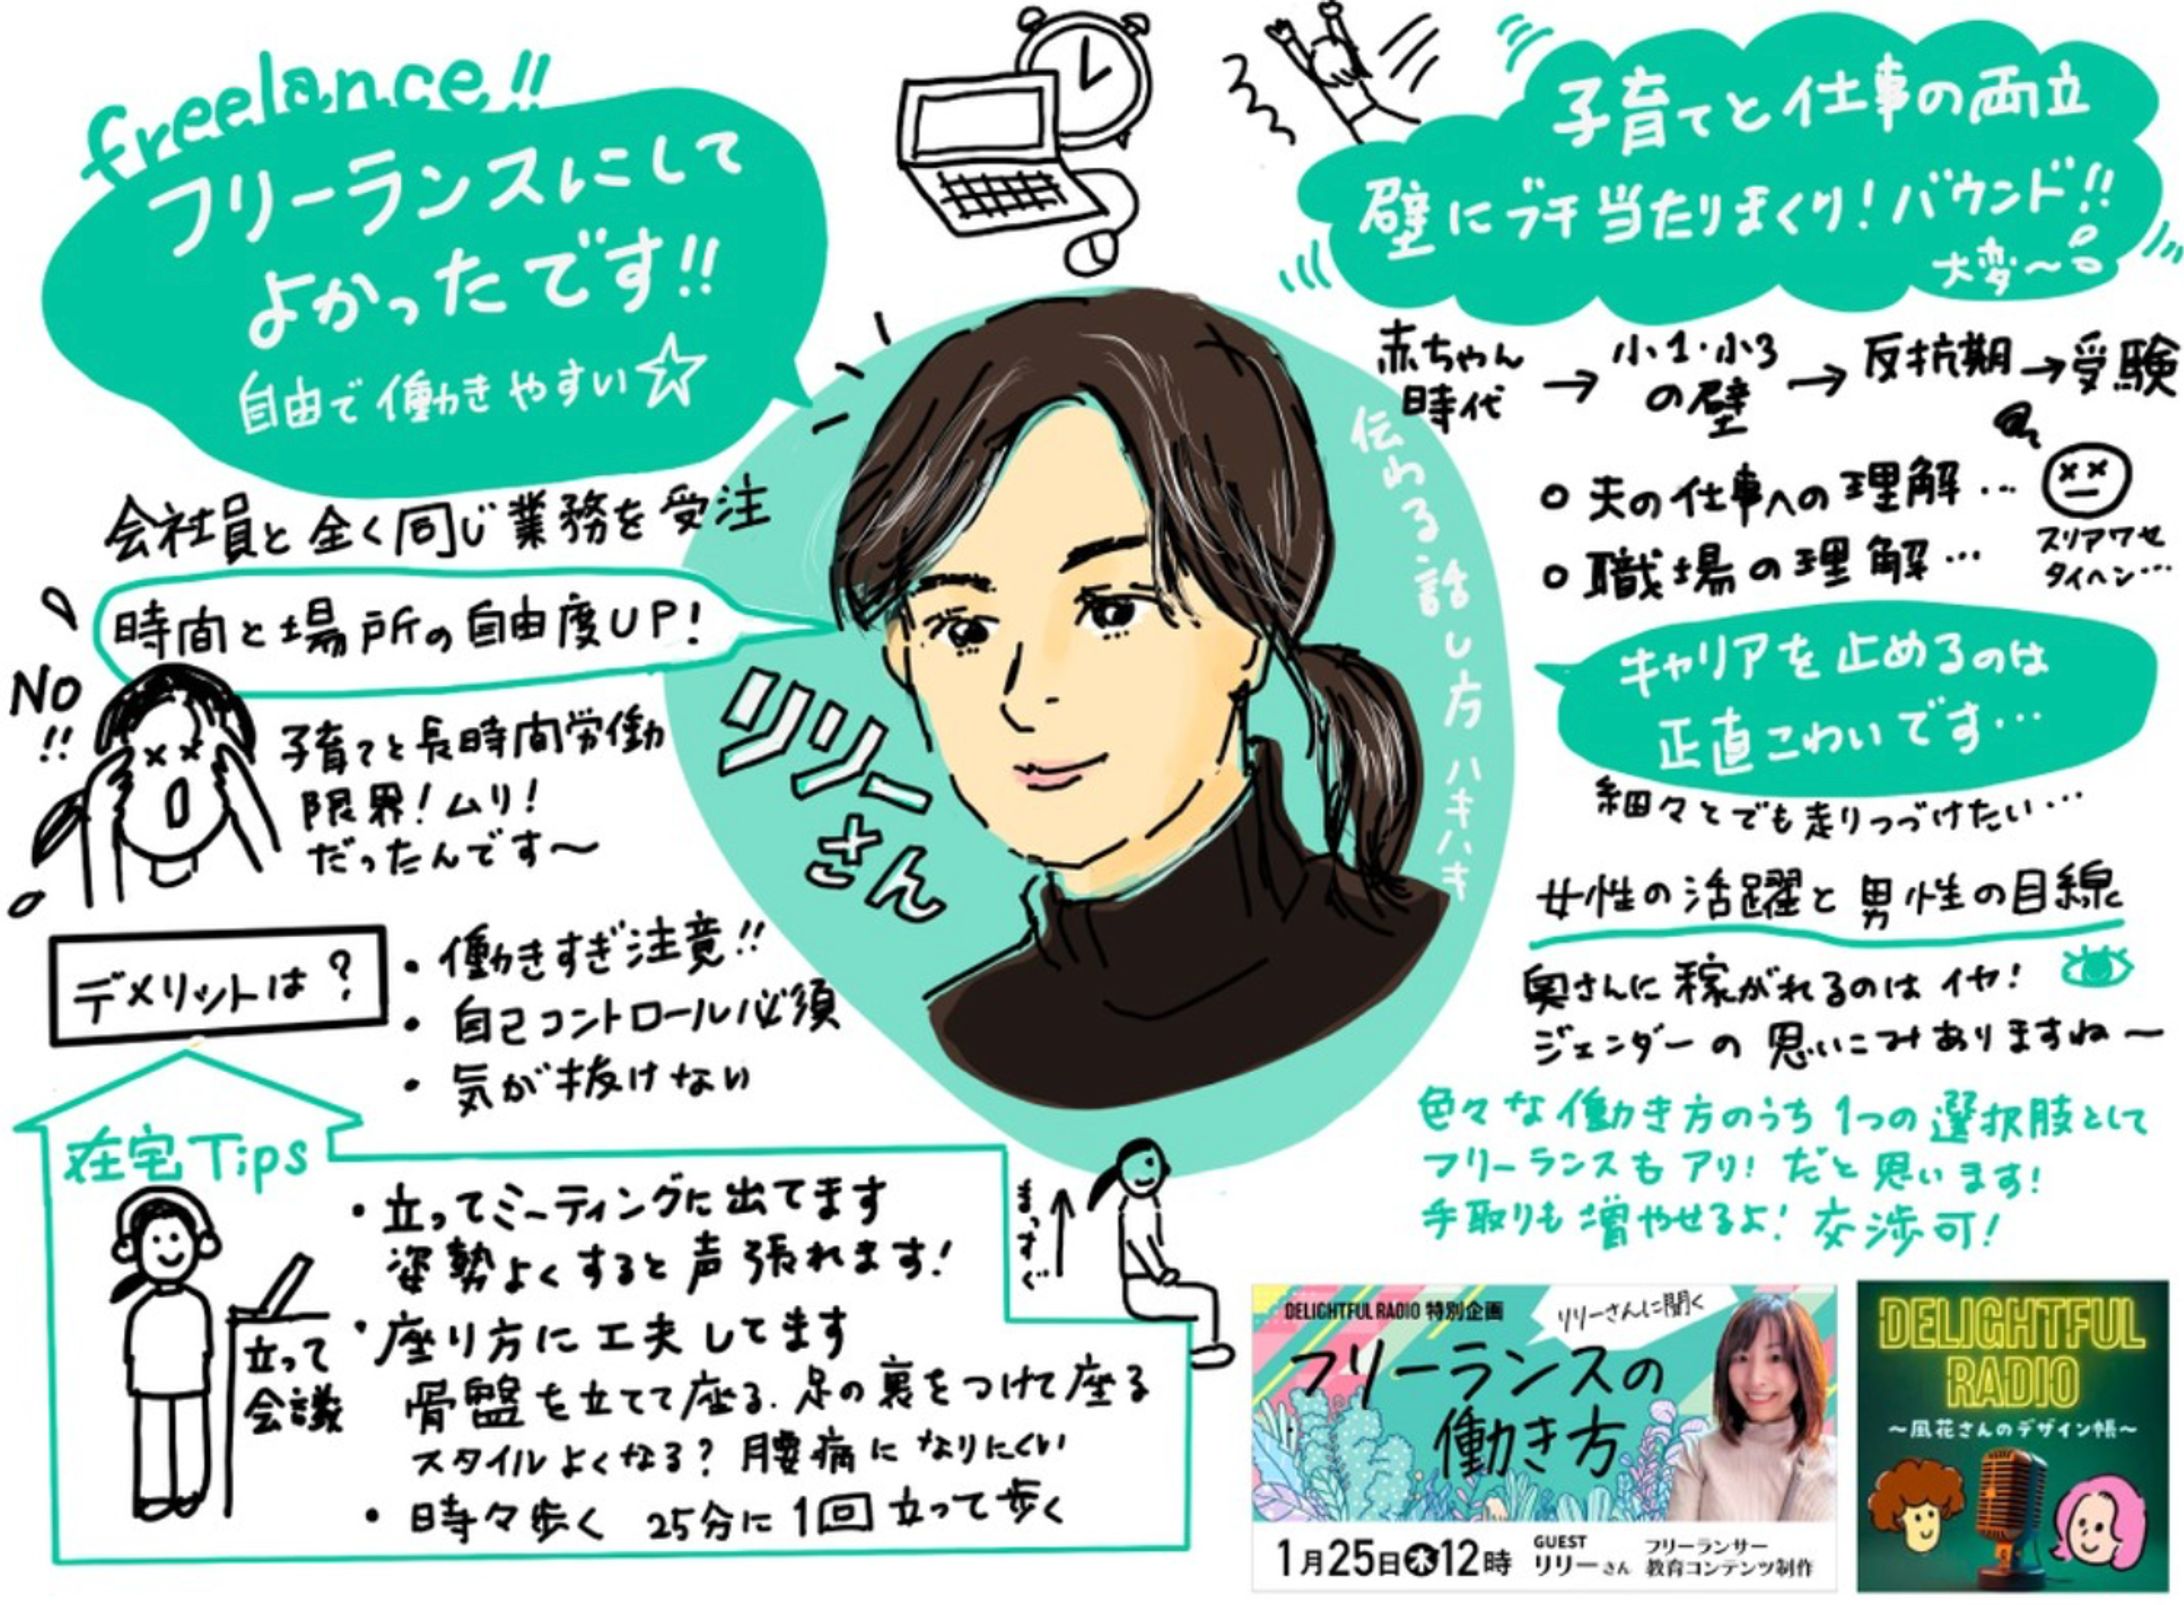 freelance!!
フリーランスにして
よかったです!!
自由で働きやすい☆
会社員と全く同じ業務を受注
時間と場所の自由度UP!
NO
!!
子育てと長時間労働
限界!ムリ!
だったんです〜
デメリットは?
・働きすぎ注意!!
・自己コントロール必須
・気が抜けない
在宅Tips
・立ってミーティングに出てます
姿勢よくすると声張れます!
・座り方に工夫してます
骨盤を立てて座る.足の裏をつけて座る
スタイルよくなる?腰痛になりにくい
・時々歩く 25分に1回立って歩く
立って
会議
まっすぐ
リリー
さん
伝わる話し方ハキハキ
子育てと仕事の両立
壁にブチ当たりまくり!バウンド!!
大変〜
赤ちゃん
時代
→
小1・小3
の壁
→
反抗期
→
受験
○夫の仕事への理解…
○職場の理解…
スリアワセ
タイヘン…
キャリアを止めるのは
正直こわいです…
細々とでも走りつづけたい…
女性の活躍と男性の目線
奥さんに稼がれるのはイヤ!
ジェンダーの思いこみありますね〜
色々な働き方のうち1つの選択肢として
フリーランスもアリ!だと思います!
手取りも増やせるよ!交渉可!
DELIGHTFUL RADIO 特別企画
リリーさんに聞く
フリーランスの
働き方
1月25日木12時
GUEST
リリーさん
フリーランサー
教育コンテンツ制作
DELIGHTFUL
RADIO
〜風花さんのデザイン帳〜